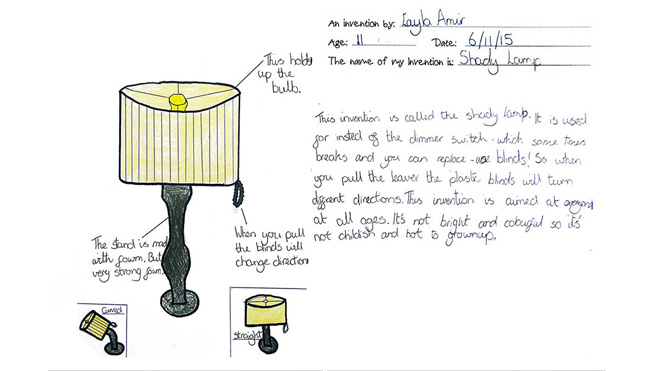 An invention by: Layla Amir
Age: 11 Date: 6/11/15
The name of my invention is: Shady Lamp
This holds
up the
bulb.
This invention is called the shady lamp. It is used
for insted of the dimmer switch - which some times
breaks and you can replace - use blinds! So when
you pull the leaver the plastic blinds will turn
different directions. This invention is aimed at
at all ages. It's not bright and colourful so it's
not childish and not to grownup.
The stand is mad
with fowm. But
very strong foam.
When you pull
the blinds will
change direction
Curved
Straight